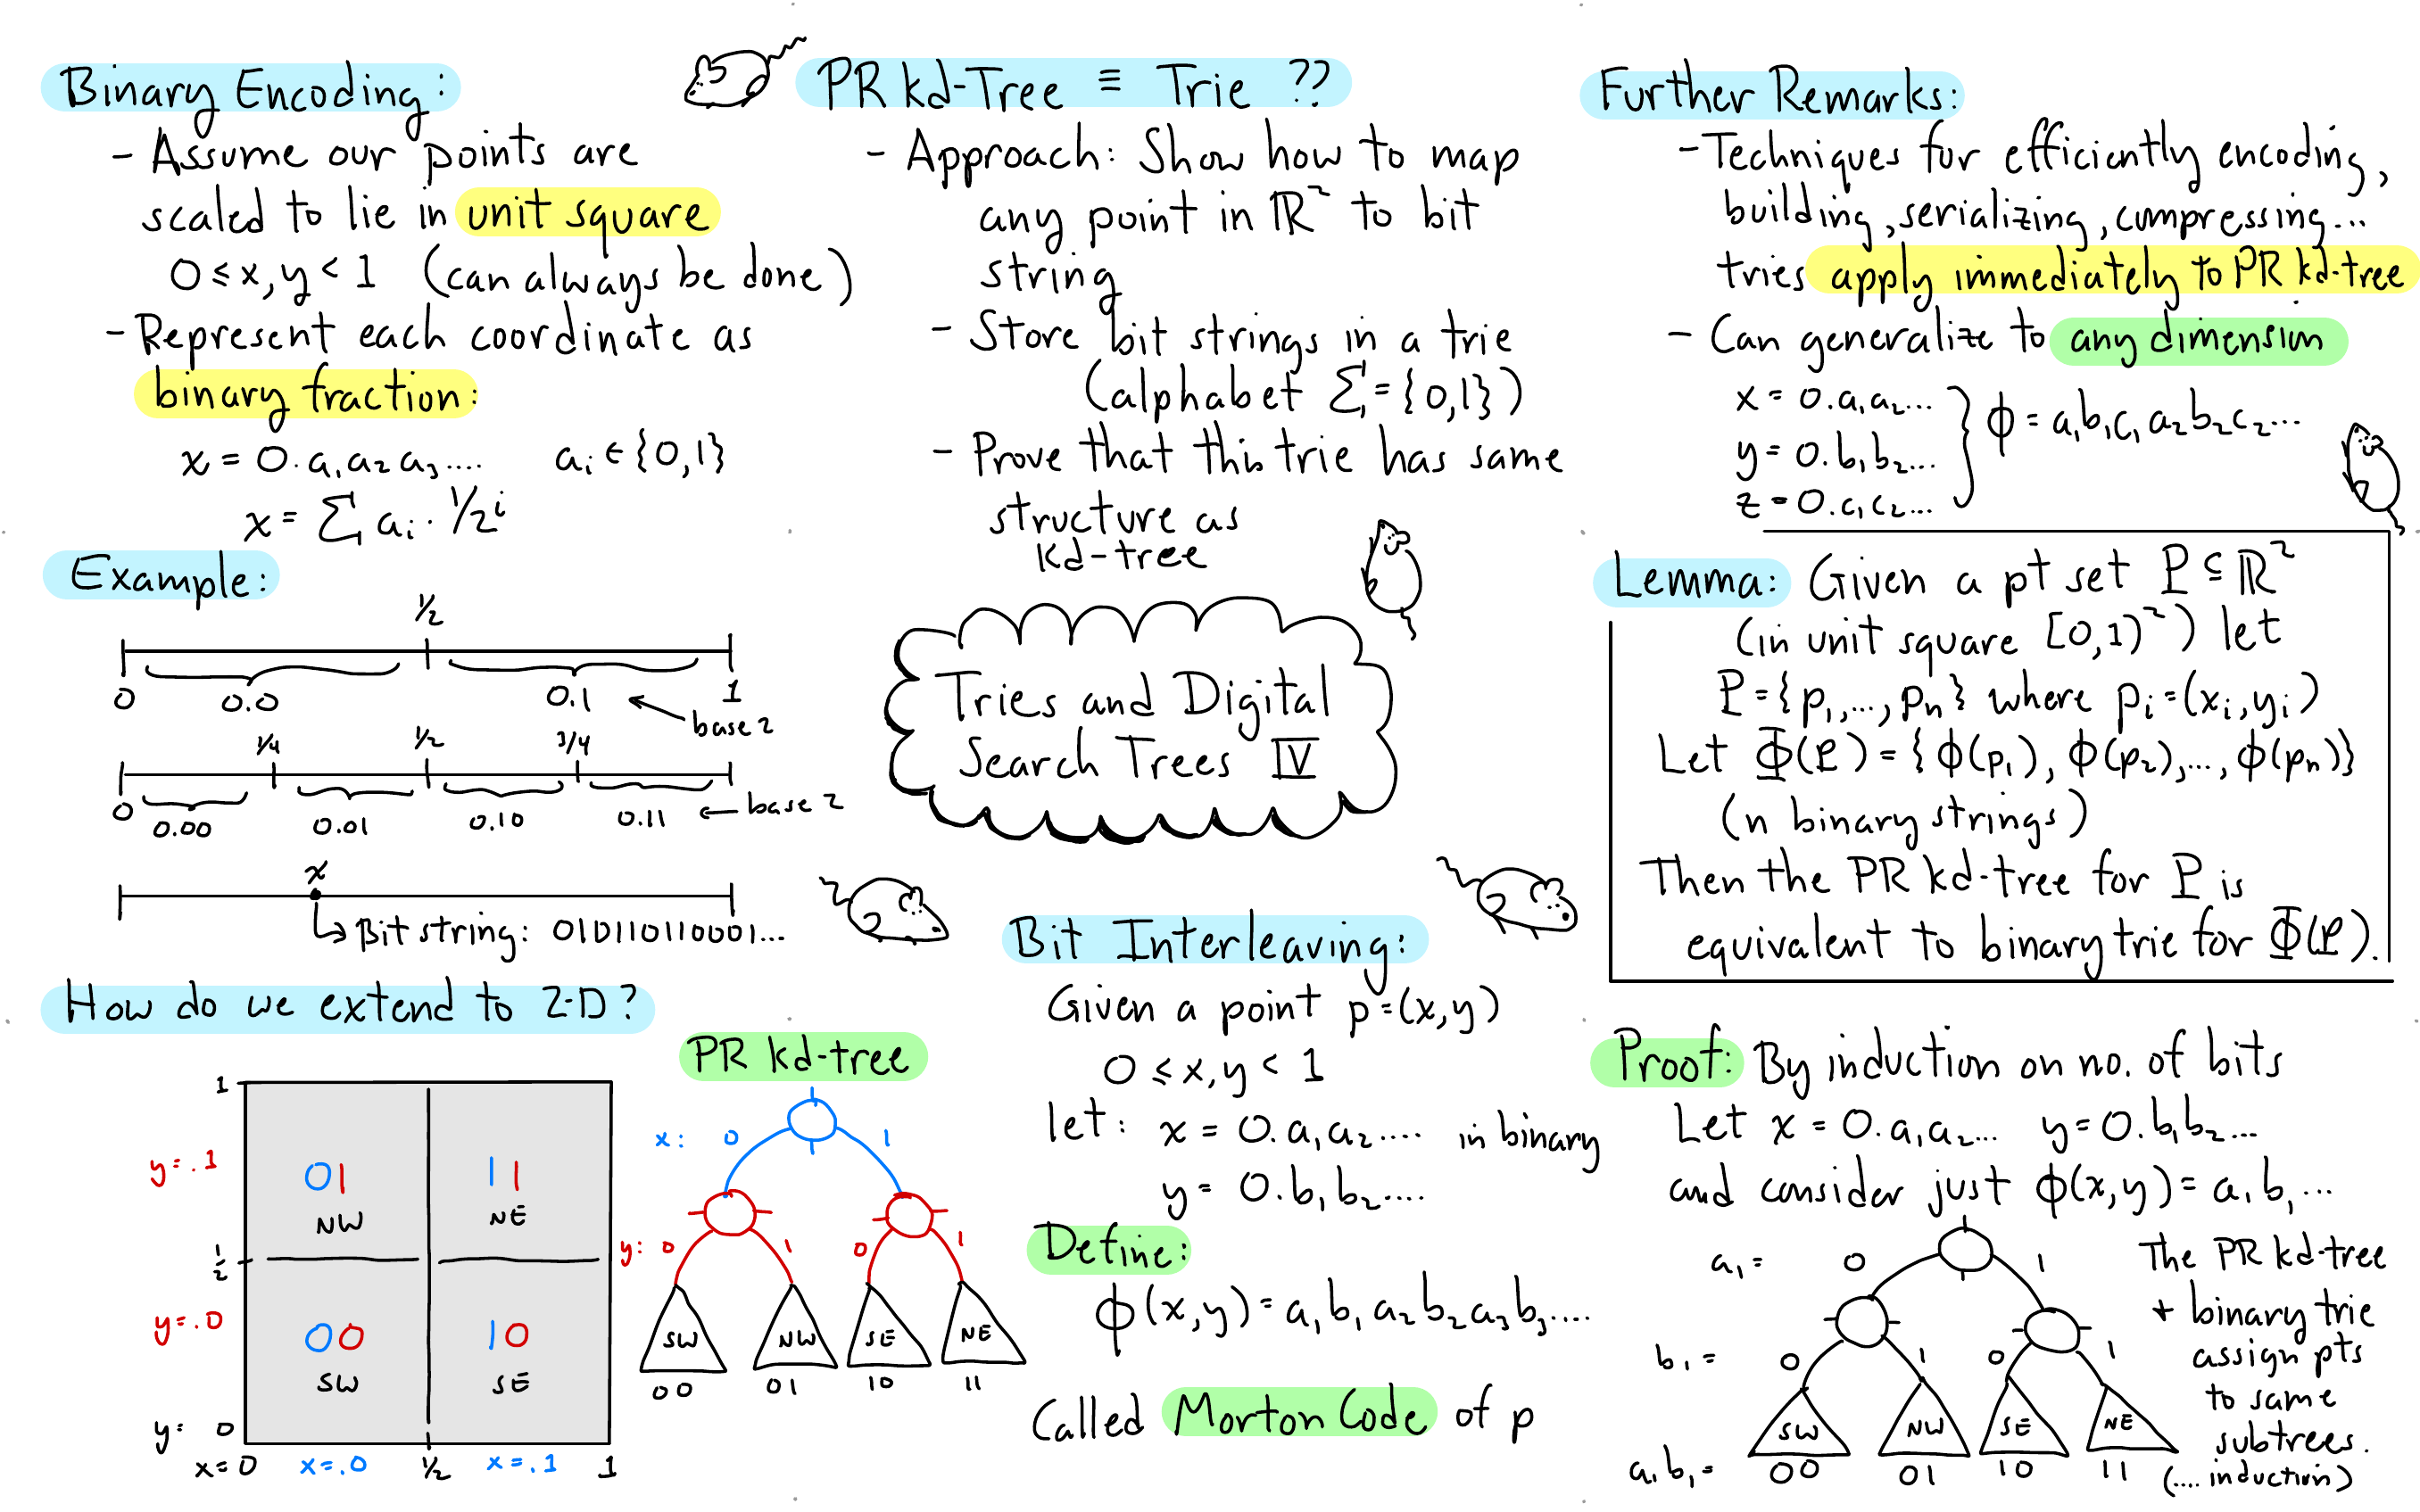 Binary Encoding:
- Assume our points are
scaled to lie in unit square
0 ≤ x, y < 1 (can always be done)
- Represent each coordinate as
binary fraction:
x = 0.a₁a₂a₃.... aᵢ ∈ {0,1}
x = Σ aᵢ · 1/2ⁱ
Example:
1/2
0 0.0 0.1 1
← base 2
1/4 1/2 3/4
0 0.00 0.01 0.10 0.11 ← base 2
x
↳ Bit string: 010110110001...
How do we extend to 2-D?
1
y=.1
01 NW
11 NE
1/2
y=.0
00 SW
10 SE
y= 0
x=0 x=.0 1/2 x=.1 1
PR kd-tree
x: 0 1
y: 0 1 0 1
SW NW SE NE
00 01 10 11
PR kd-Tree ≡ Trie ??
- Approach: Show how to map
any point in ℝ² to bit
string
- Store bit strings in a trie
(alphabet Σ = {0,1})
- Prove that this trie has same
structure as
kd-tree
Tries and Digital
Search Trees IV
Bit Interleaving:
Given a point p=(x,y)
0 ≤ x, y < 1
let: x = 0.a₁a₂.... in binary
y = 0.b₁b₂....
Define:
ϕ(x,y) = a₁b₁a₂b₂a₃b₃....
Called Morton Code of p
Further Remarks:
- Techniques for efficiently encoding,
building, serializing, compressing...
tries apply immediately to PR kd-tree
- Can generalize to any dimension
x = 0.a₁a₂...
y = 0.b₁b₂...
z = 0.c₁c₂...
} ϕ = a₁b₁c₁a₂b₂c₂...
Lemma: Given a pt set P ⊆ ℝ²
(in unit square [0,1)²) let
P = {p₁,...,pₙ} where pᵢ=(xᵢ,yᵢ)
Let Φ(P) = {ϕ(p₁), ϕ(p₂),..., ϕ(pₙ)}
(n binary strings)
Then the PR kd-tree for P is
equivalent to binary trie for Φ(P).
Proof: By induction on no. of bits
Let x = 0.a₁a₂... y=0.b₁b₂...
and consider just ϕ(x,y) = a₁b₁...
a₁= 0 1
b₁= 0 1 0 1
SW NW SE NE
a₁b₁= 00 01 10 11
The PR kd-tree
+ binary trie
assign pts
to same
subtrees.
(.... induction)